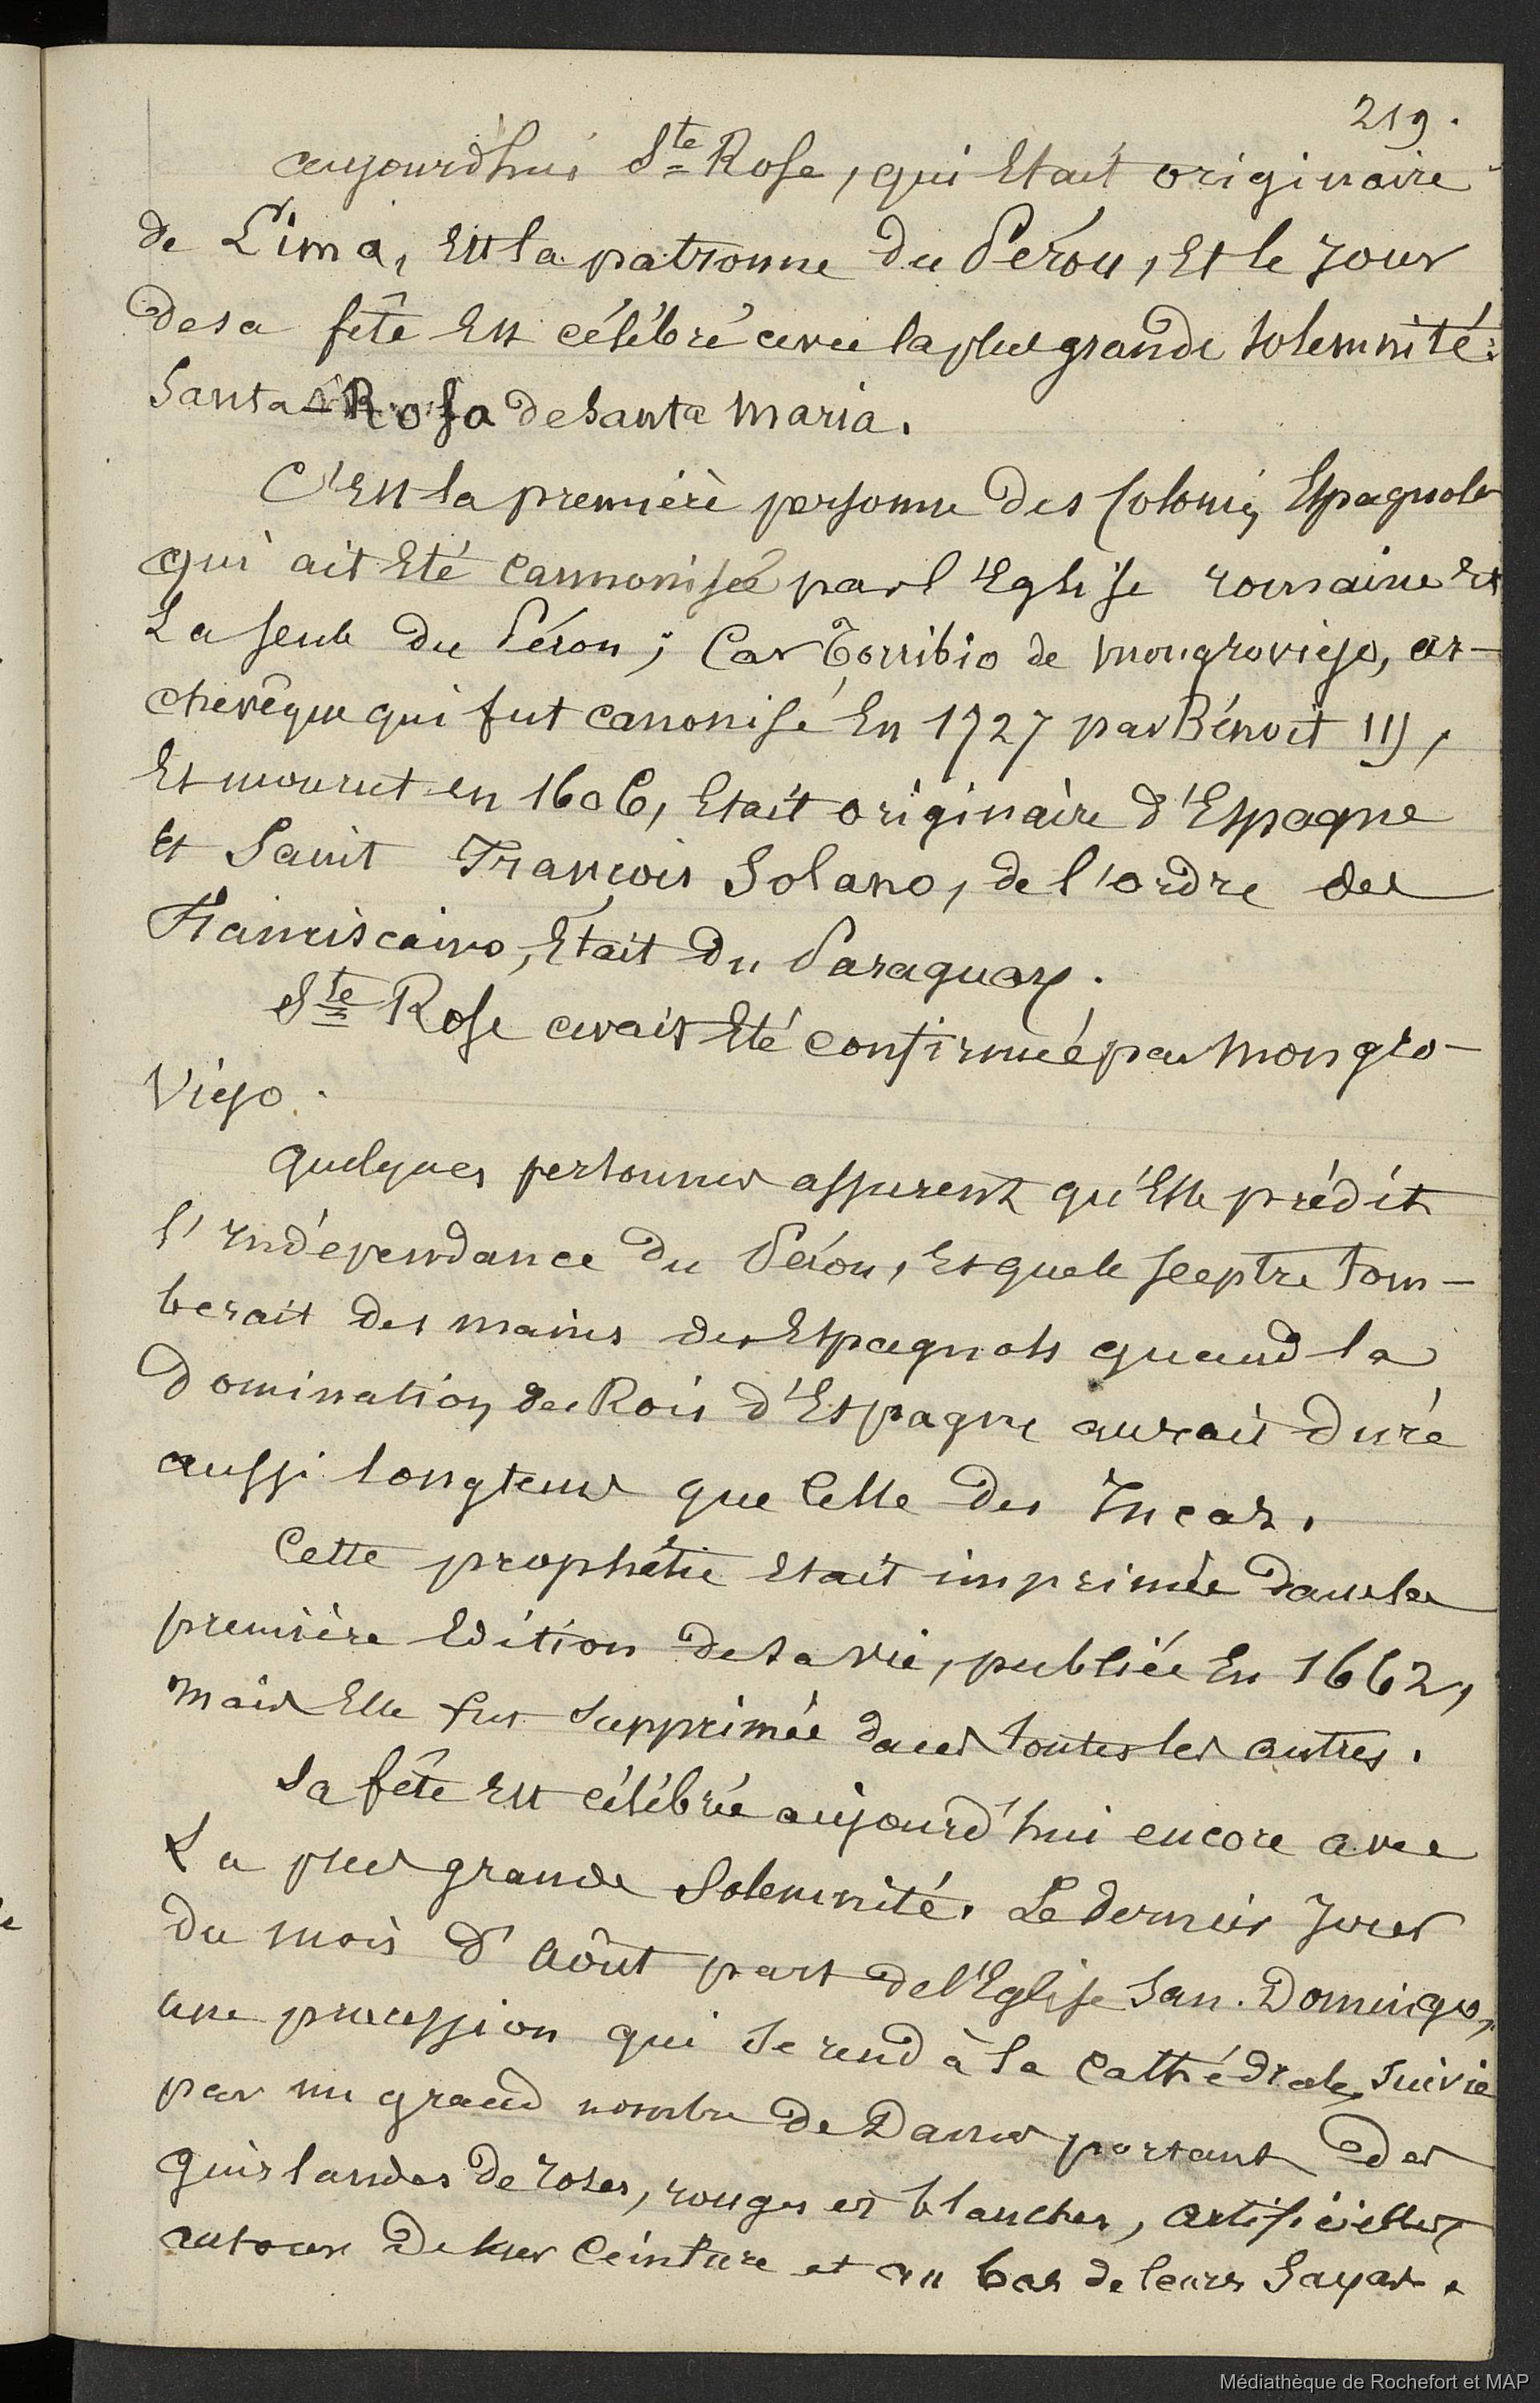 219.
aujourdhui Ste Rose, qui Etait originaire
de Lima, Est la patronne du Pérou, Et le Jour
de sa fête Est célébré avec la plus grande solemnité:
Santa Rosa de Santa Maria.
C'Est la première personne des Colonies Espagnoles
qui ait Eté cannonisée par l'Eglise romaine Et
La seule du Pérou; Car Torribio de Mongroviejo, ar-
chevêque qui fut canonisé En 1727 par Bénoit III,
Et mourut en 1606, Etait originaire d'Espagne
Et Saint François Solano, de l'ordre des
Franciscains, Etait du Paraguay.
Ste Rose avait Eté confirmée par Mongro-
Viejo.
Quelques personnes assurent qu'Elle prédit
l'Indépendance du Pérou, Et que le sceptre tom-
berait des mains des Espagnols quand la
Domination des Rois d'Espagne aurait duré
aussi longtems que Celle des Incas.
Cette prophétie Etait imprimée dans la
première Edition de sa vie, publiée En 1662,
mais Elle fut supprimée dans toutes les autres.
Sa fête Est célébrée aujourd'hui encore avec
La plus grande Solemnité. Le dernier Jour
du mois d'Août part de l'Eglise San. Domingo,
une procession qui se rend à la Cathédrale, suivie
par un grand nombre de Dames portant des
guirlandes de roses, rouges et blanches, artificielles
autour de leur Ceinture et au bas de leurs Sayas.
Médiathèque de Rochefort et MAP